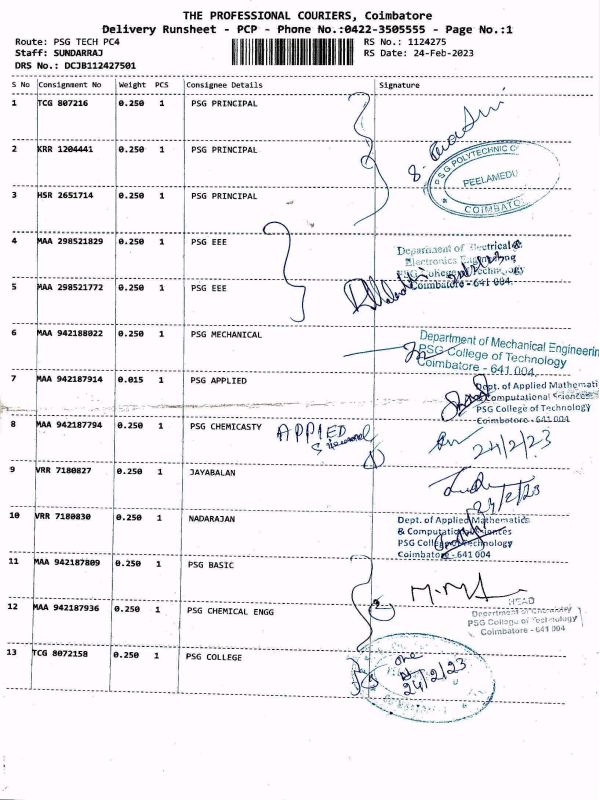 THE PROFESSIONAL COURIERS, Coimbatore
Delivery Runsheet - PCP - Phone No.:0422-3505555 - Page No.:1
Route: PSG TECH PC4 RS No.: 1124275
Staff: SUNDARRAJ RS Date: 24-Feb-2023
DRS No.: DCJB112427501
S No Consignment No Weight PCS Consignee Details Signature
1 TCG 807216 0.250 1 PSG PRINCIPAL
2 KRR 1204441 0.250 1 PSG PRINCIPAL
PSG POLYTECHNIC
PEELAMEDU
COIMBATO
3 HSR 2651714 0.250 1 PSG PRINCIPAL
4 MAA 298521829 0.250 1 PSG EEE
Department of Electrical &
Electronics Engineering
PSG College of Technology
5 MAA 298521772 0.250 1 PSG EEE
Coimbatore - 641 004
6 MAA 942188022 0.250 1 PSG MECHANICAL
Department of Mechanical Engineerin
PSG College of Technology
Coimbatore - 641 004
7 MAA 942187914 0.015 1 PSG APPLIED
Dept. of Applied Mathemati
& Computational Sciences
PSG College of Technology
Coimbatore - 641 004
8 MAA 942187794 0.250 1 PSG CHEMICASTY APPIED
24/2/23
9 VRR 7180827 0.250 1 JAYABALAN
24/2/23
10 VRR 7180830 0.250 1 NADARAJAN
Dept. of Applied Mathematics
& Computational Sciences
PSG College of Technology
Coimbatore - 641 004
11 MAA 942187809 0.250 1 PSG BASIC
12 MAA 942187936 0.250 1 PSG CHEMICAL ENGG
HEAD
Department of Chemistry
PSG College of Technology
Coimbatore - 641 004
13 TCG 8072158 0.250 1 PSG COLLEGE
24/2/23